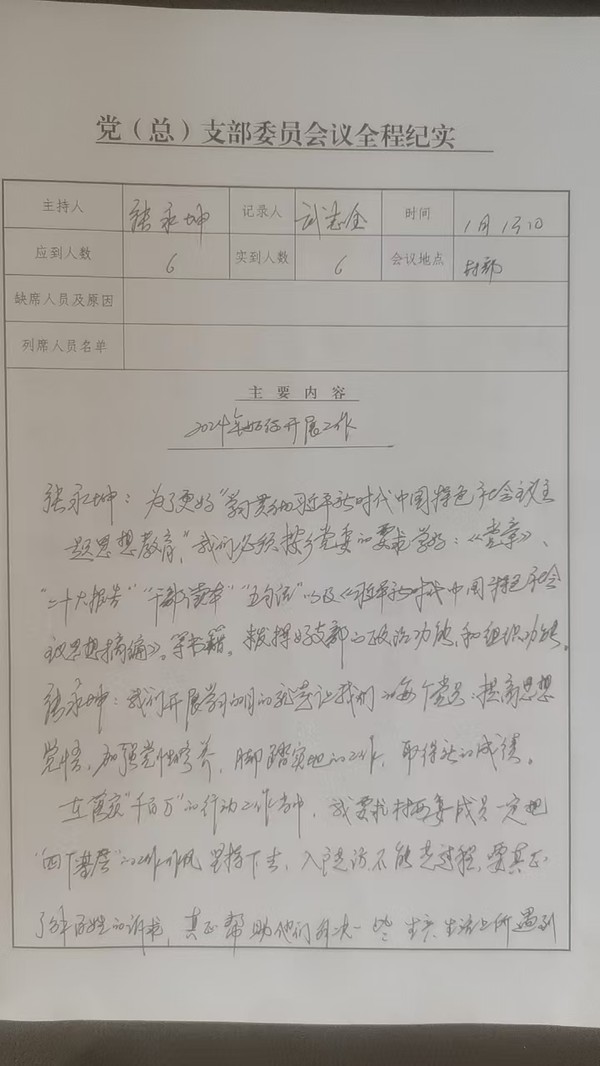 党（总）支部委员会议全程纪实
主持人 张永坤 记录人 武志全 时间 1月15日
应到人数 6 实到人数 6 会议地点 村部
缺席人员及原因
列席人员名单
主要内容
2024年如何开展工作
张永坤：为了更好“学习贯彻习近平新时代中国特色社会主义主
题思想教育，”我们必须按乡党委的要求学好：《党章》、
“二十大报告”“干部读本”“五句话”以及《习近平新时代中国特色社会
主义思想摘编》。等书籍。发挥好支部的政治功能，和组织功能。
张永坤：我们开展学习的目的就是让我们的每个党员：提高思想
觉悟，加强党性修养，脚踏实地的工作，取得新的成绩。
在落实“千百万”的行动工作当中，我要求村两委成员一定把
“四下基层”的工作作风坚持下去，入户走访不能走过程，要真正
了解百姓的诉求，真正帮助他们解决一些生产、生活上所遇到